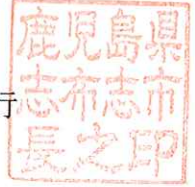 鹿児島県
志布志市
長之印